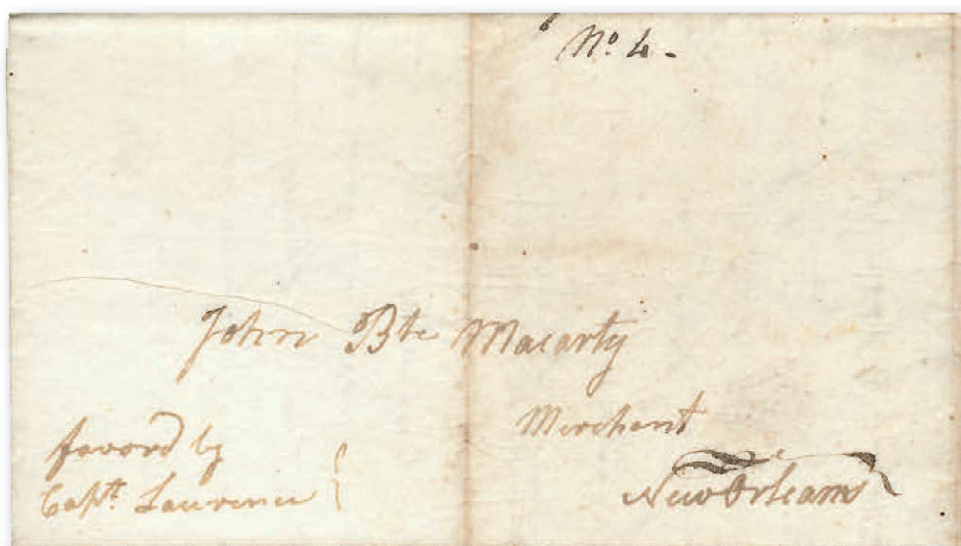 No. 4-
John Bte Macarty
Merchant
New Orleans
favord by
Captt. Lawrence